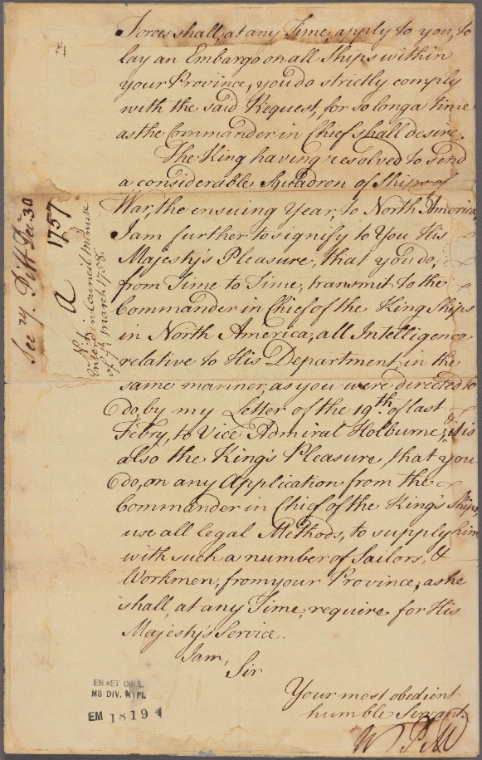 Forces shall, at any Time, apply to you, to
lay an Embargo on all Ships within
your Province, you do strictly comply
with the said Request, for so long a time
as the Commander in Chief shall desire.
The King having resolved to send
a considerable Squadron of Ships of
War, the ensuing Year, to North America
I am further to signify to You His
Majesty's Pleasure, that you do,
from Time to Time, transmit to the
Commander in Chief of the King Ships
in North America, all Intelligence
relative to His Department, in the
same manner, as you were directed to
do, by my Letter of the 19th. of last
Febry, to Vice Admiral Holburne; it is
also the King's Pleasure, that you
do, on any Application from the
Commander in Chief of the King's Ships,
use all legal Methods, to supply him
with such a number of Sailors, &
Workmen, from your Province, as he
shall, at any Time, require for His
Majesty's Service.
I am,
Sir
Your most obedient
humble Servant.
W Pitt
Secy. Pitt Dec. 30
1757
a
No. 1
Entered in Council Minute
of 7th march 1758.
EMMET COLL.
MS DIV. NYPL
EM 18194